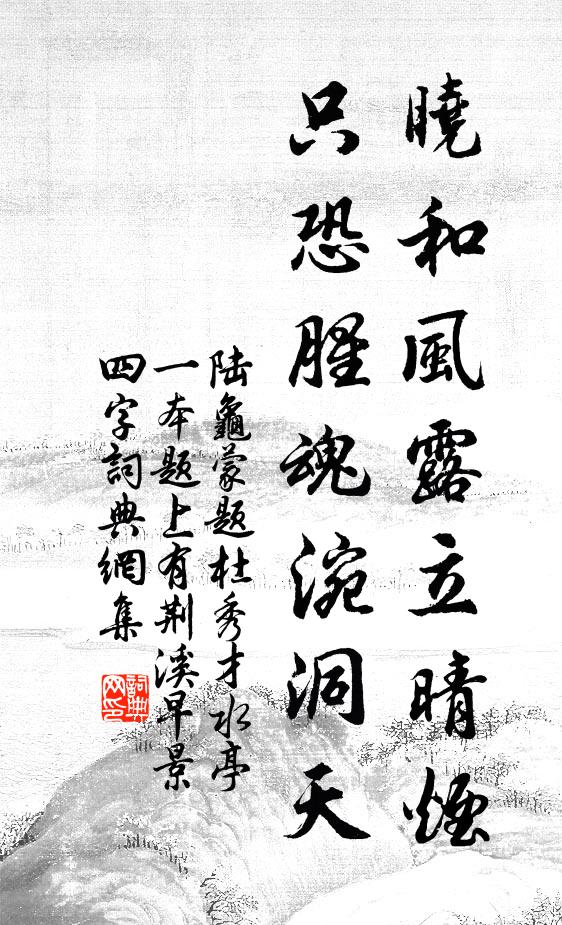 曉和風露立晴煙
只恐腥魂涴洞天
陆龜蒙题杜秀才水亭
一本题上有荆溪早景
四字詞典網集
詞典网印